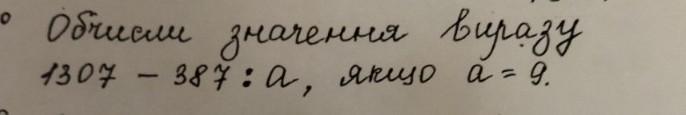 Обчисли значення виразу
1307 – 387 : а, якщо а = 9.